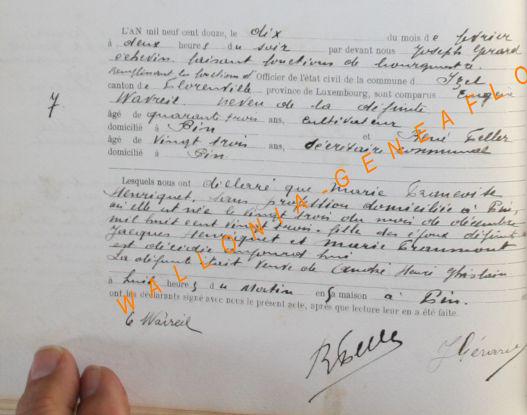 L'AN mil neuf cent douze, le dix du mois de février
à deux heures du soir par devant nous Joseph Gérard
échevin faisant fonctions de bourgmestre
remplissant les fonctions d'Officier de l'état civil de la commune d'Izel
canton de Florenville province de Luxembourg, sont comparus Eugène
7
Wavreil neveu de la défunte
âgé de quarante trois ans, cultivateur
domicilié à Pin et René Feller
âgé de vingt trois ans, secrétaire communal
domicilié à Pin
Lesquels nous ont déclaré que Marie
Henriquet, sans profession domiciliée à Pin,
qu'elle est née le vingt trois du mois de décembre
mil huit cent vingt trois, fille des époux défunts
Jacques Henriquet et Marie
est décédée aujourd'hui
La défunte était veuve de André Henri Ghislain
à huit heures du matin en sa maison à Pin.
ont les déclarants signé avec nous le présent acte, après que lecture leur en a été faite.
E Wavreil
R Feller
J Gérard
WALLONIA-GENEAFLO